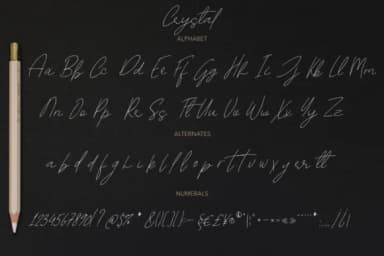 Crystal
ALPHABET
Aa Bb Cc Dd Ee Ff Gg Hh Ii Jj Kk Ll Mm
Nn Oo Pp Rr Ss Tt Uu Vv Ww Xx Yy Zz
ALTERNATES
a b d d f g h i k l l o p r t t u w x y
NUMERALS
1234567890!? @$%